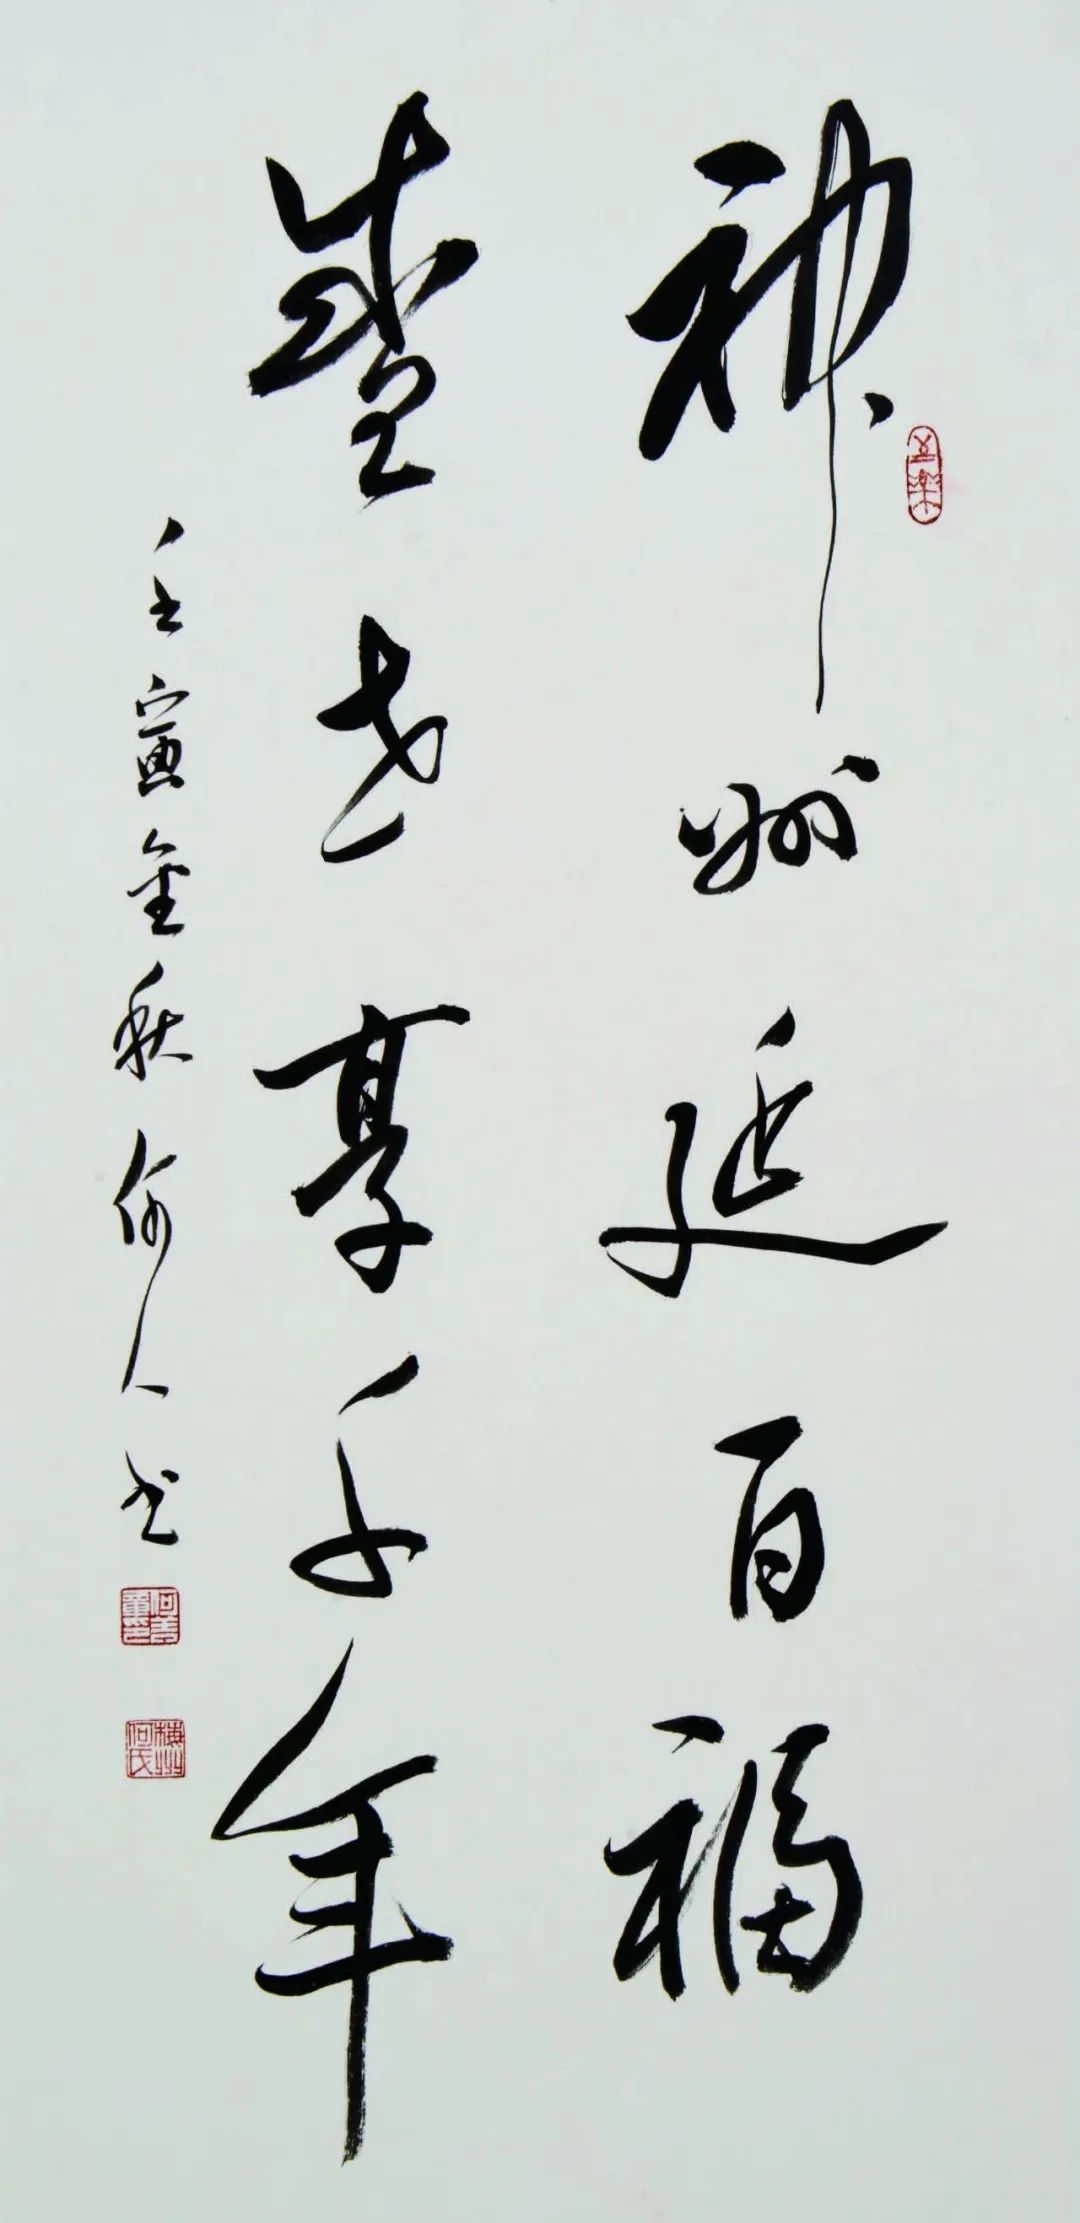 神州延百福
盛世享千年
壬寅金秋何人书
梅州何氏